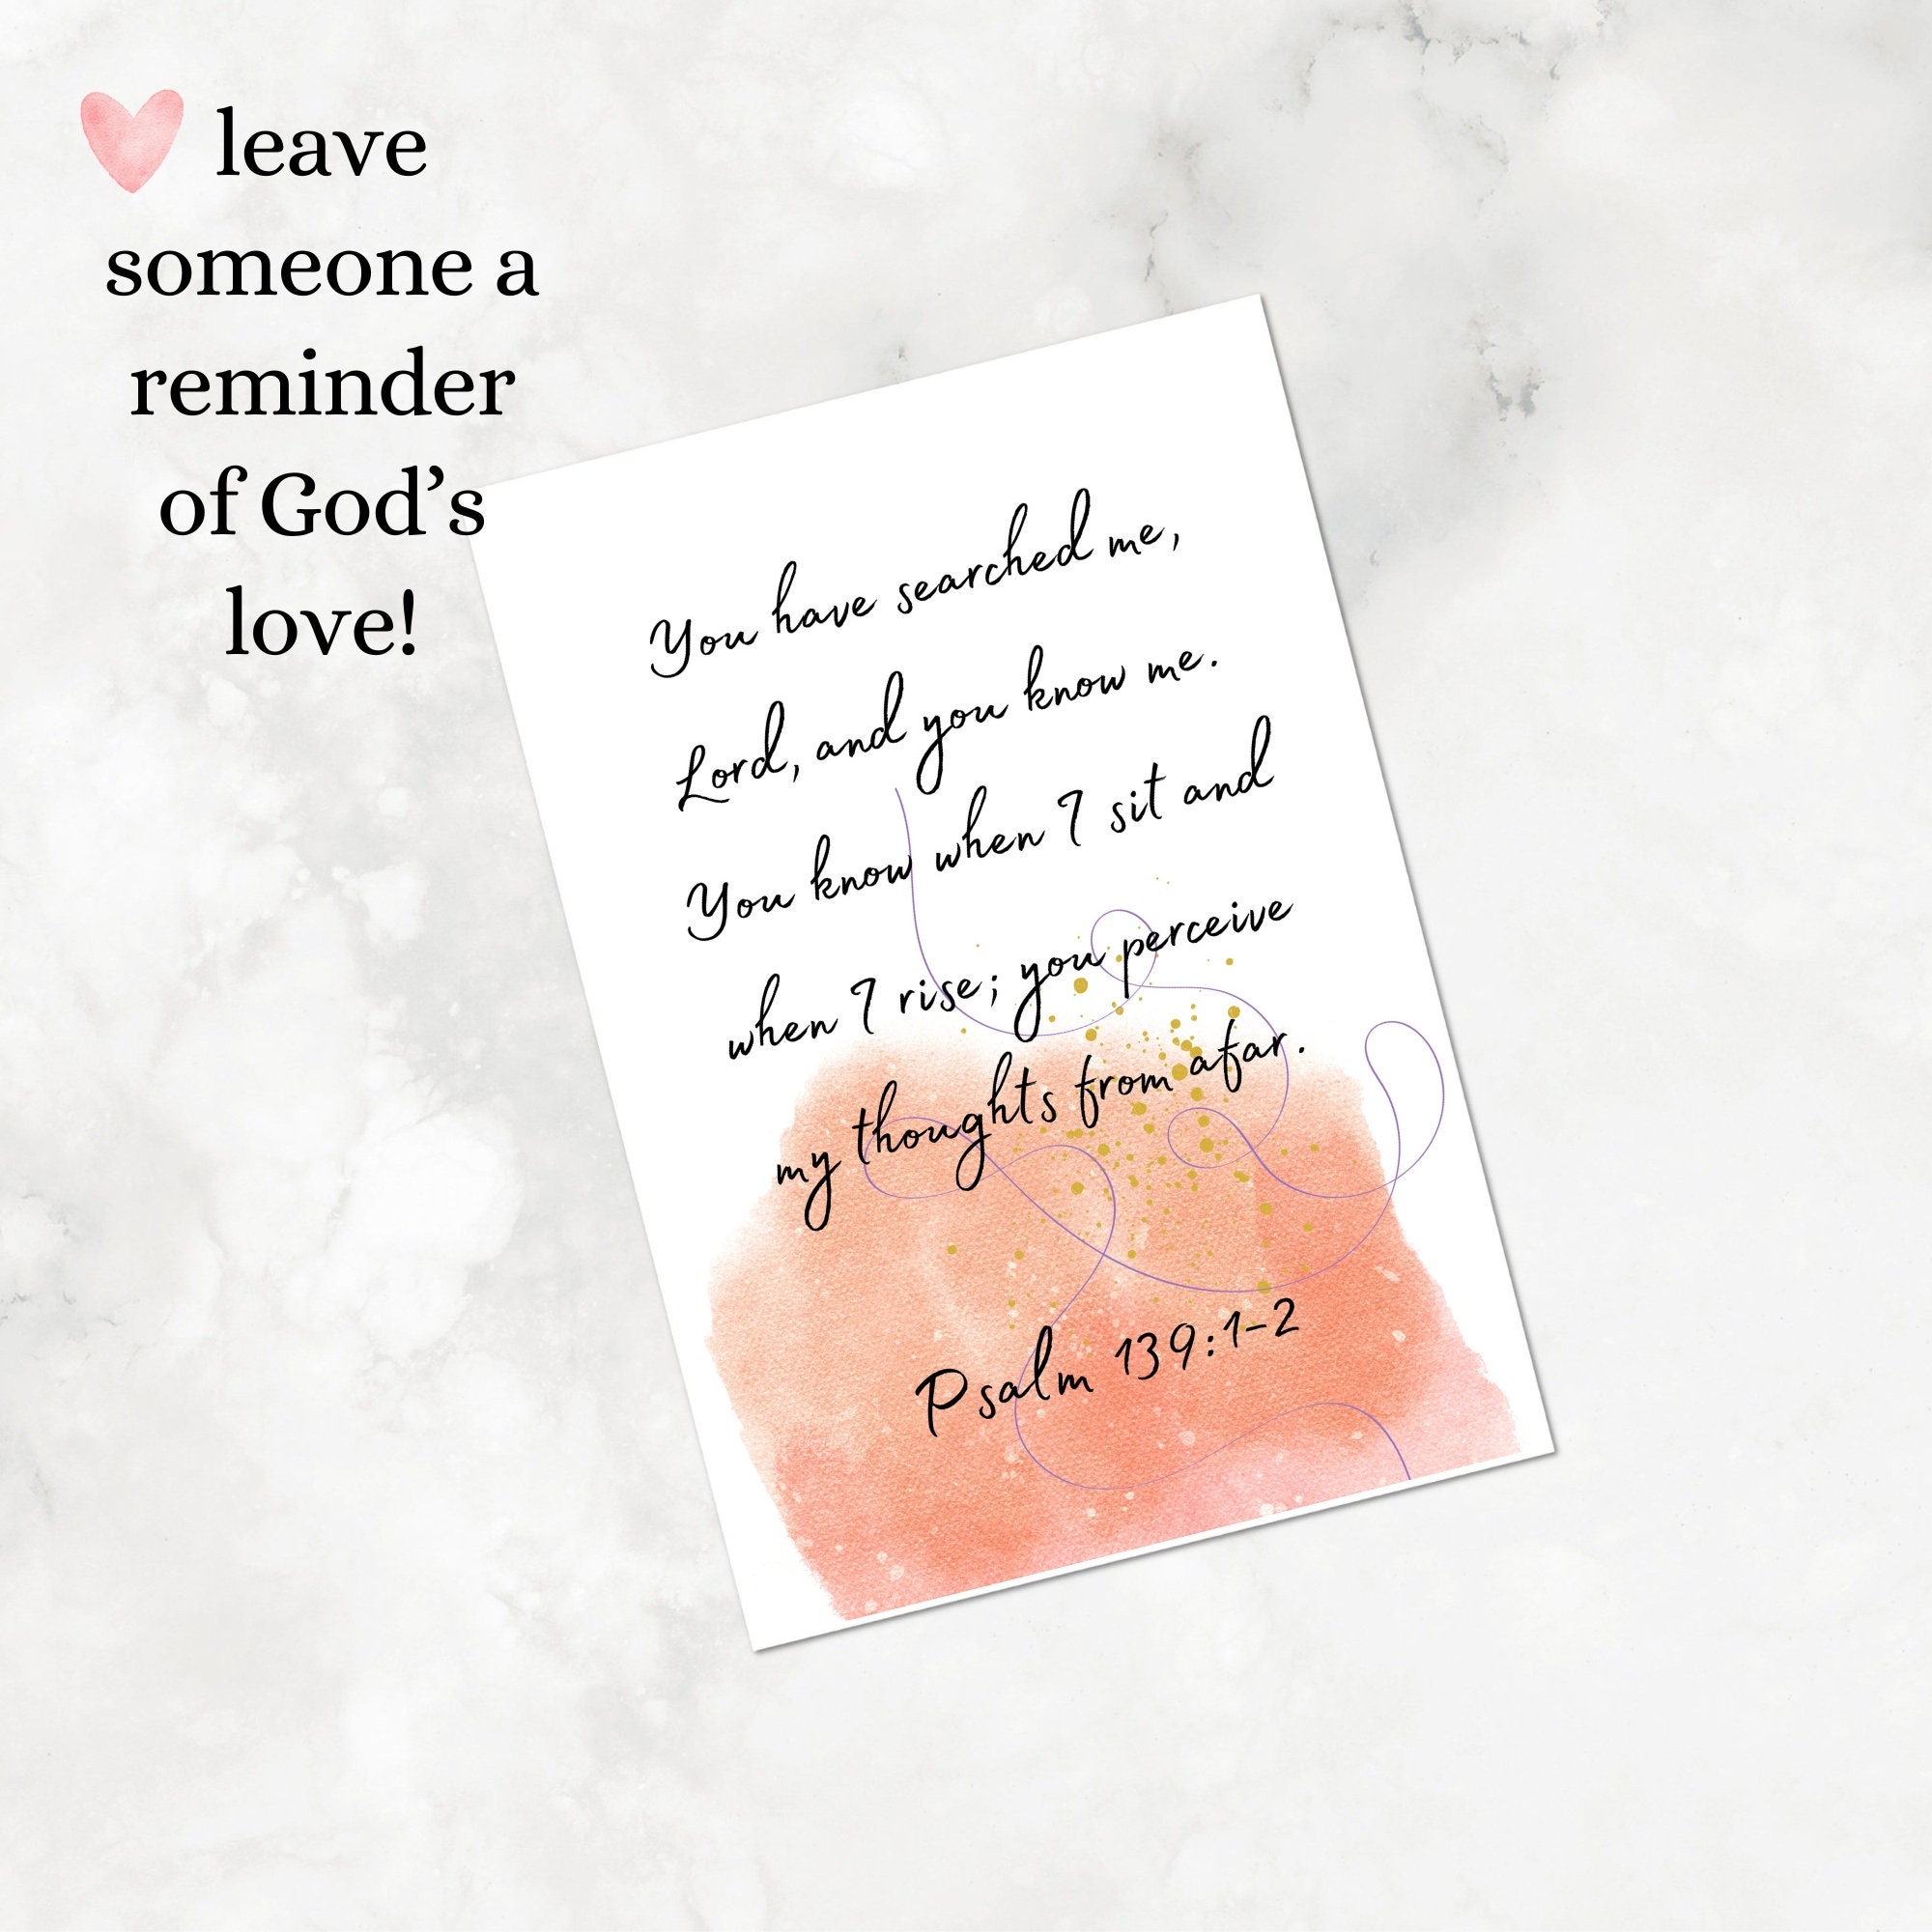 leave
someone a
reminder
of God’s
love!
You have searched me,
Lord, and you know me.
You know when I sit and
when I rise; you perceive
my thoughts from afar.
Psalm 139:1-2